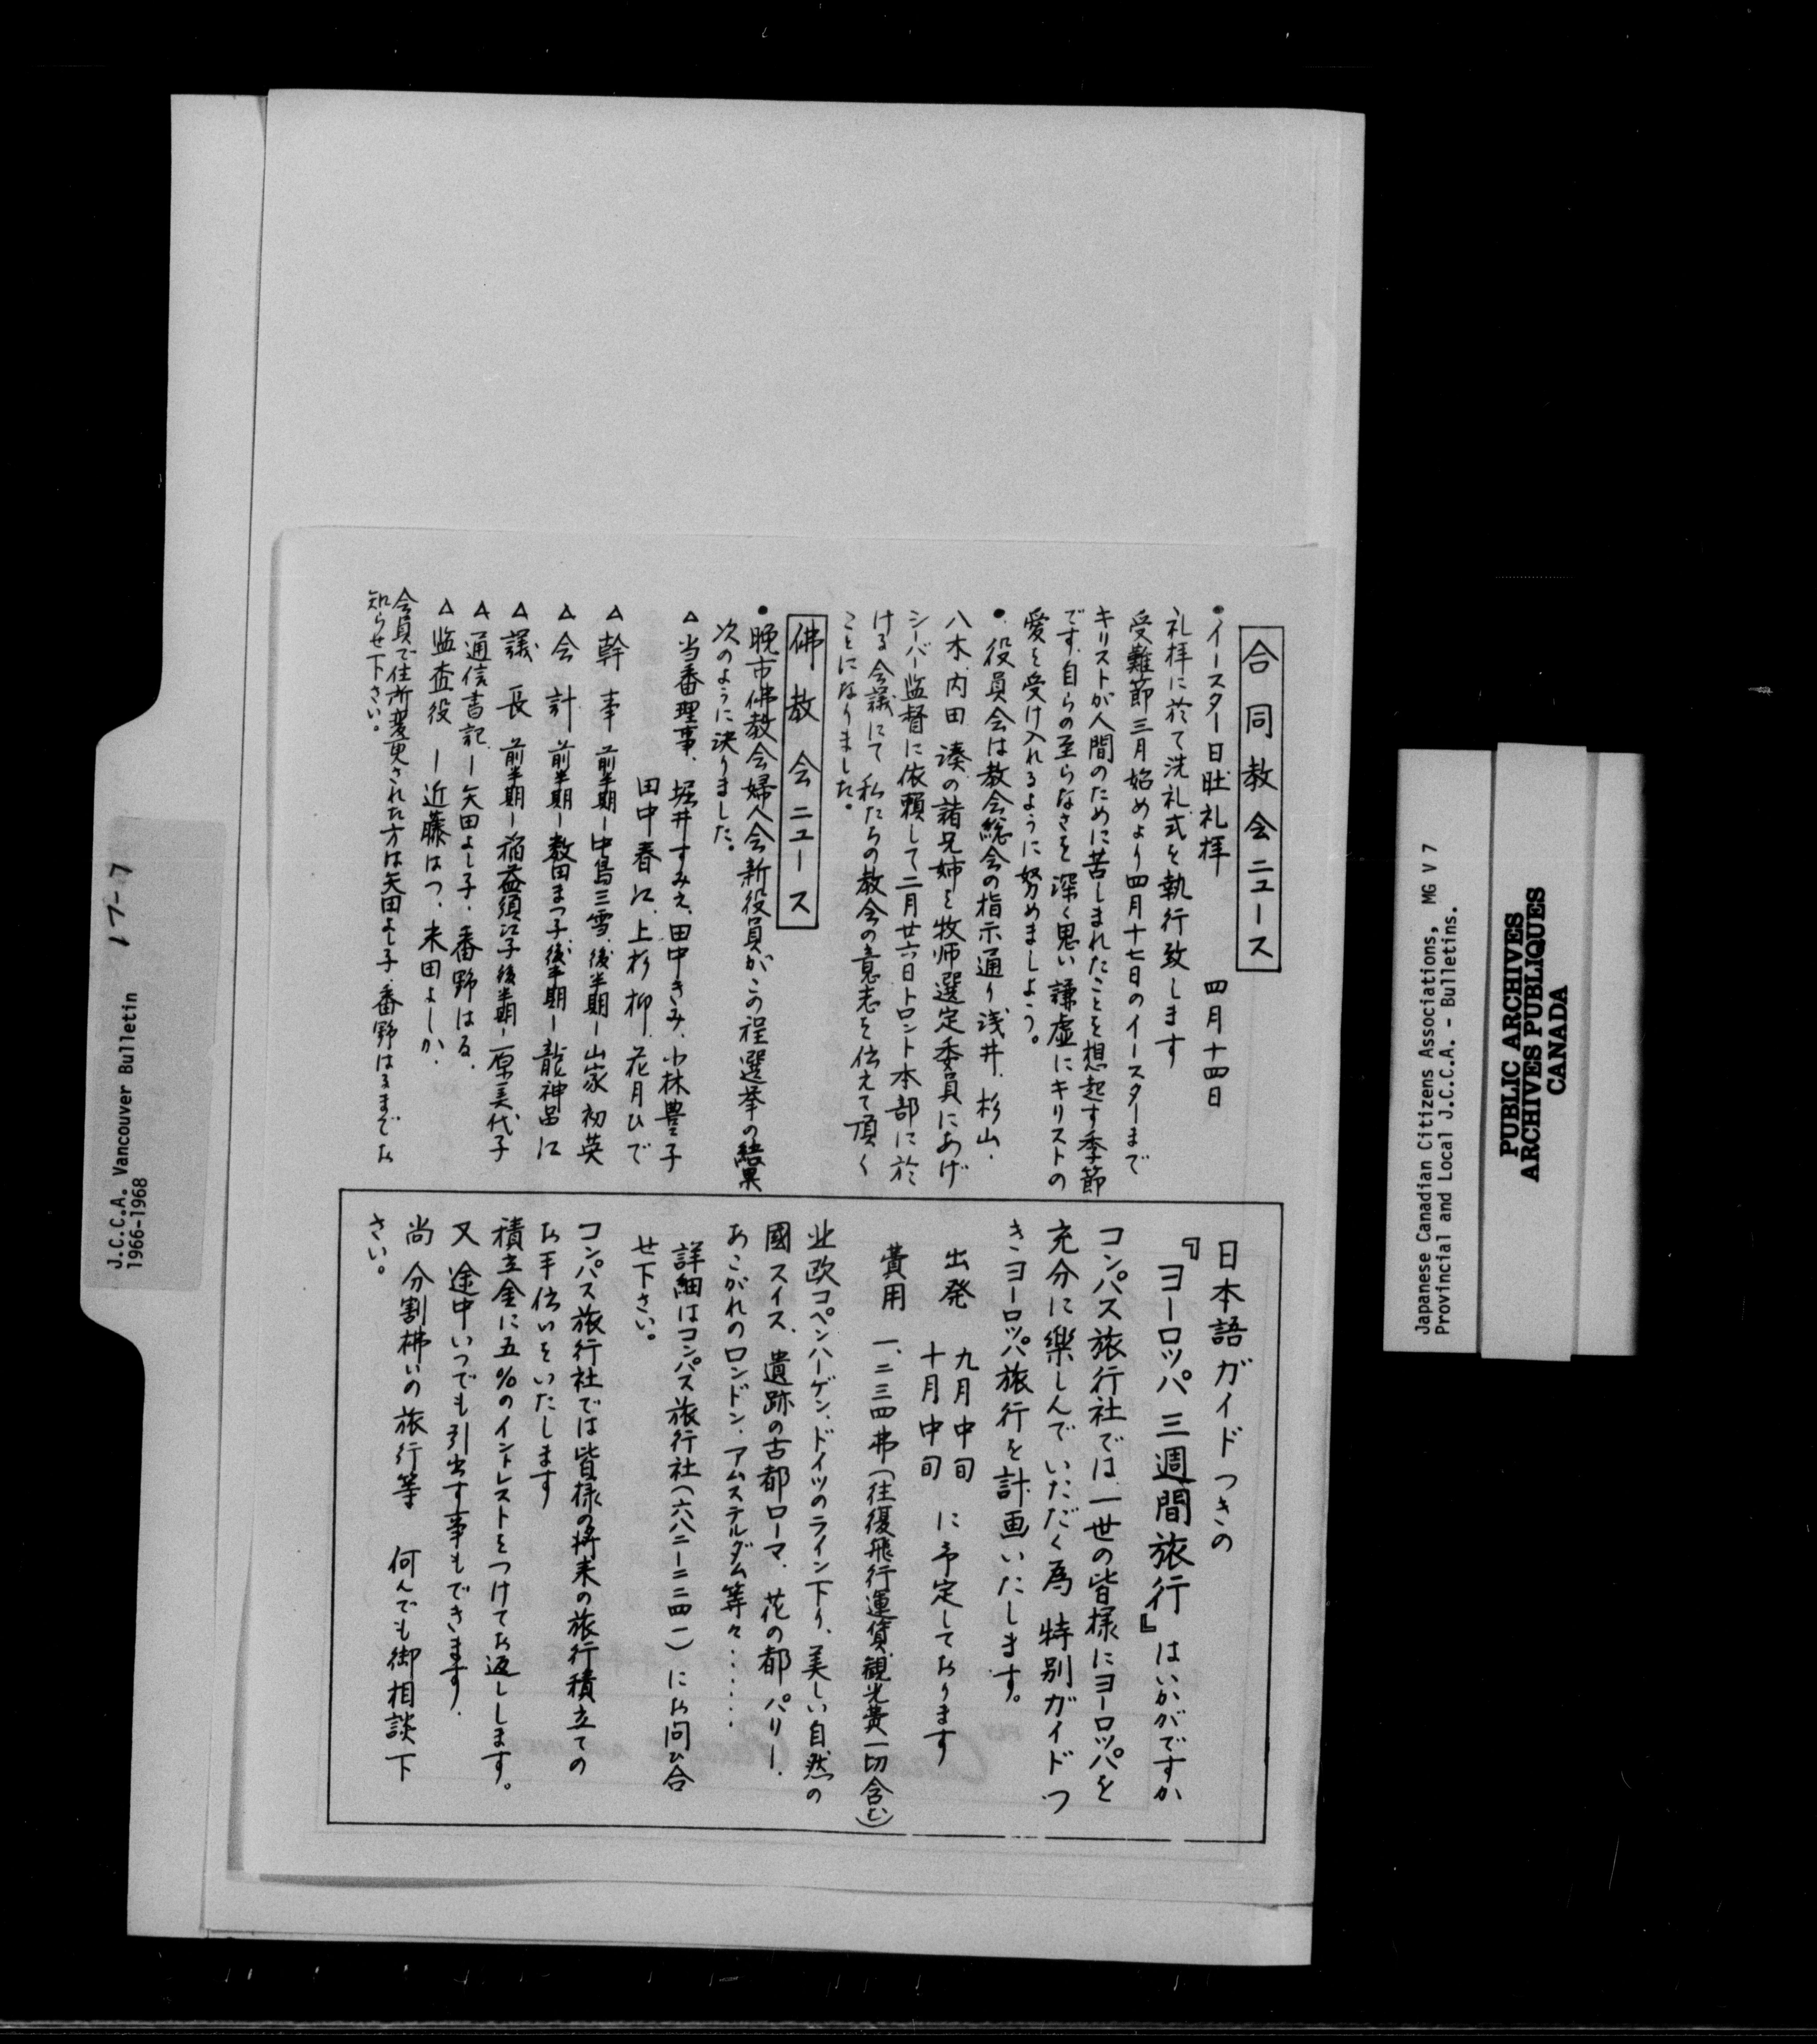 合同教会ニュース
・イースター日旺礼拝 四月十四日
礼拝に於て洗礼式を執行致します
受難節三月始めより四月十七日のイースターまで
キリストが人間のために苦しまれたことを想起す季節
です、自らの至らなさを深く思い謙虚にキリストの
愛を受け入れるように努めましよう。
・役員会は教会総会の指示通り浅井、杉山、
八木、内田、湊の諸兄姉を牧師選定委員にあげ
シーバー監督に依頼して二月廿六日トロント本部に於
ける会議にて私たちの教会の意志を伝えて頂く
ことになりました。
佛教会ニュース
・晩市佛教会婦人会新役員がこの程選挙の結果
次のように決りました。
△当番理事、堀井すみえ、田中きみ、小林豊子
田中春江、上杉柳、花月ひで
△幹事 前半期ー中島三雪、後半期ー山家初英
△会計 前半期ー数田まつ子後半期ー龍神皆江
△議長 前半期ー稲益須江子後半期ー原美代子
△通信書記、ー矢田よし子・番野はる、
△監査役 ー近藤はつ、米田よしか、
会員で住所変更された方は矢田よし子、番野はるまでお
知らせ下さい。
日本語ガイドつきの
『ヨーロッパ三週間旅行』はいかがですか
コンパス旅行社では、一世の皆様にヨーロッパを
充分に楽しんでいただく為 特別ガイドつ
きヨーロッパ旅行を計画いたします。
出発 九月中旬
十月中旬 に予定しております
費用 一、二三四弗(往復飛行運賃、観光費一切含む)
北欧コペンハーゲン、ドイツのライン下り、美しい自然の
國スイス、遺跡の古都ローマ、花の都パリー、
あこがれのロンドン、アムステルダム等々……
詳細はコンパス旅行社(六八二ー二三四一)にお問ひ合
せ下さい。
コンパス旅行社では皆様の将来の旅行積立ての
お手伝いをいたします
積立金に五%のイントレストをつけてお返しします。
又 途中いつでも引出す事もできます、
尚 分割拂いの旅行等 何んでも御相談下
さい。
J.C.C.A. Vancouver Bulletin 17-7
1966-1968
Japanese Canadian Citizens Associations, MG V 7
Provincial and Local J.C.C.A. - Bulletins.
PUBLIC ARCHIVES
ARCHIVES PUBLIQUES
CANADA